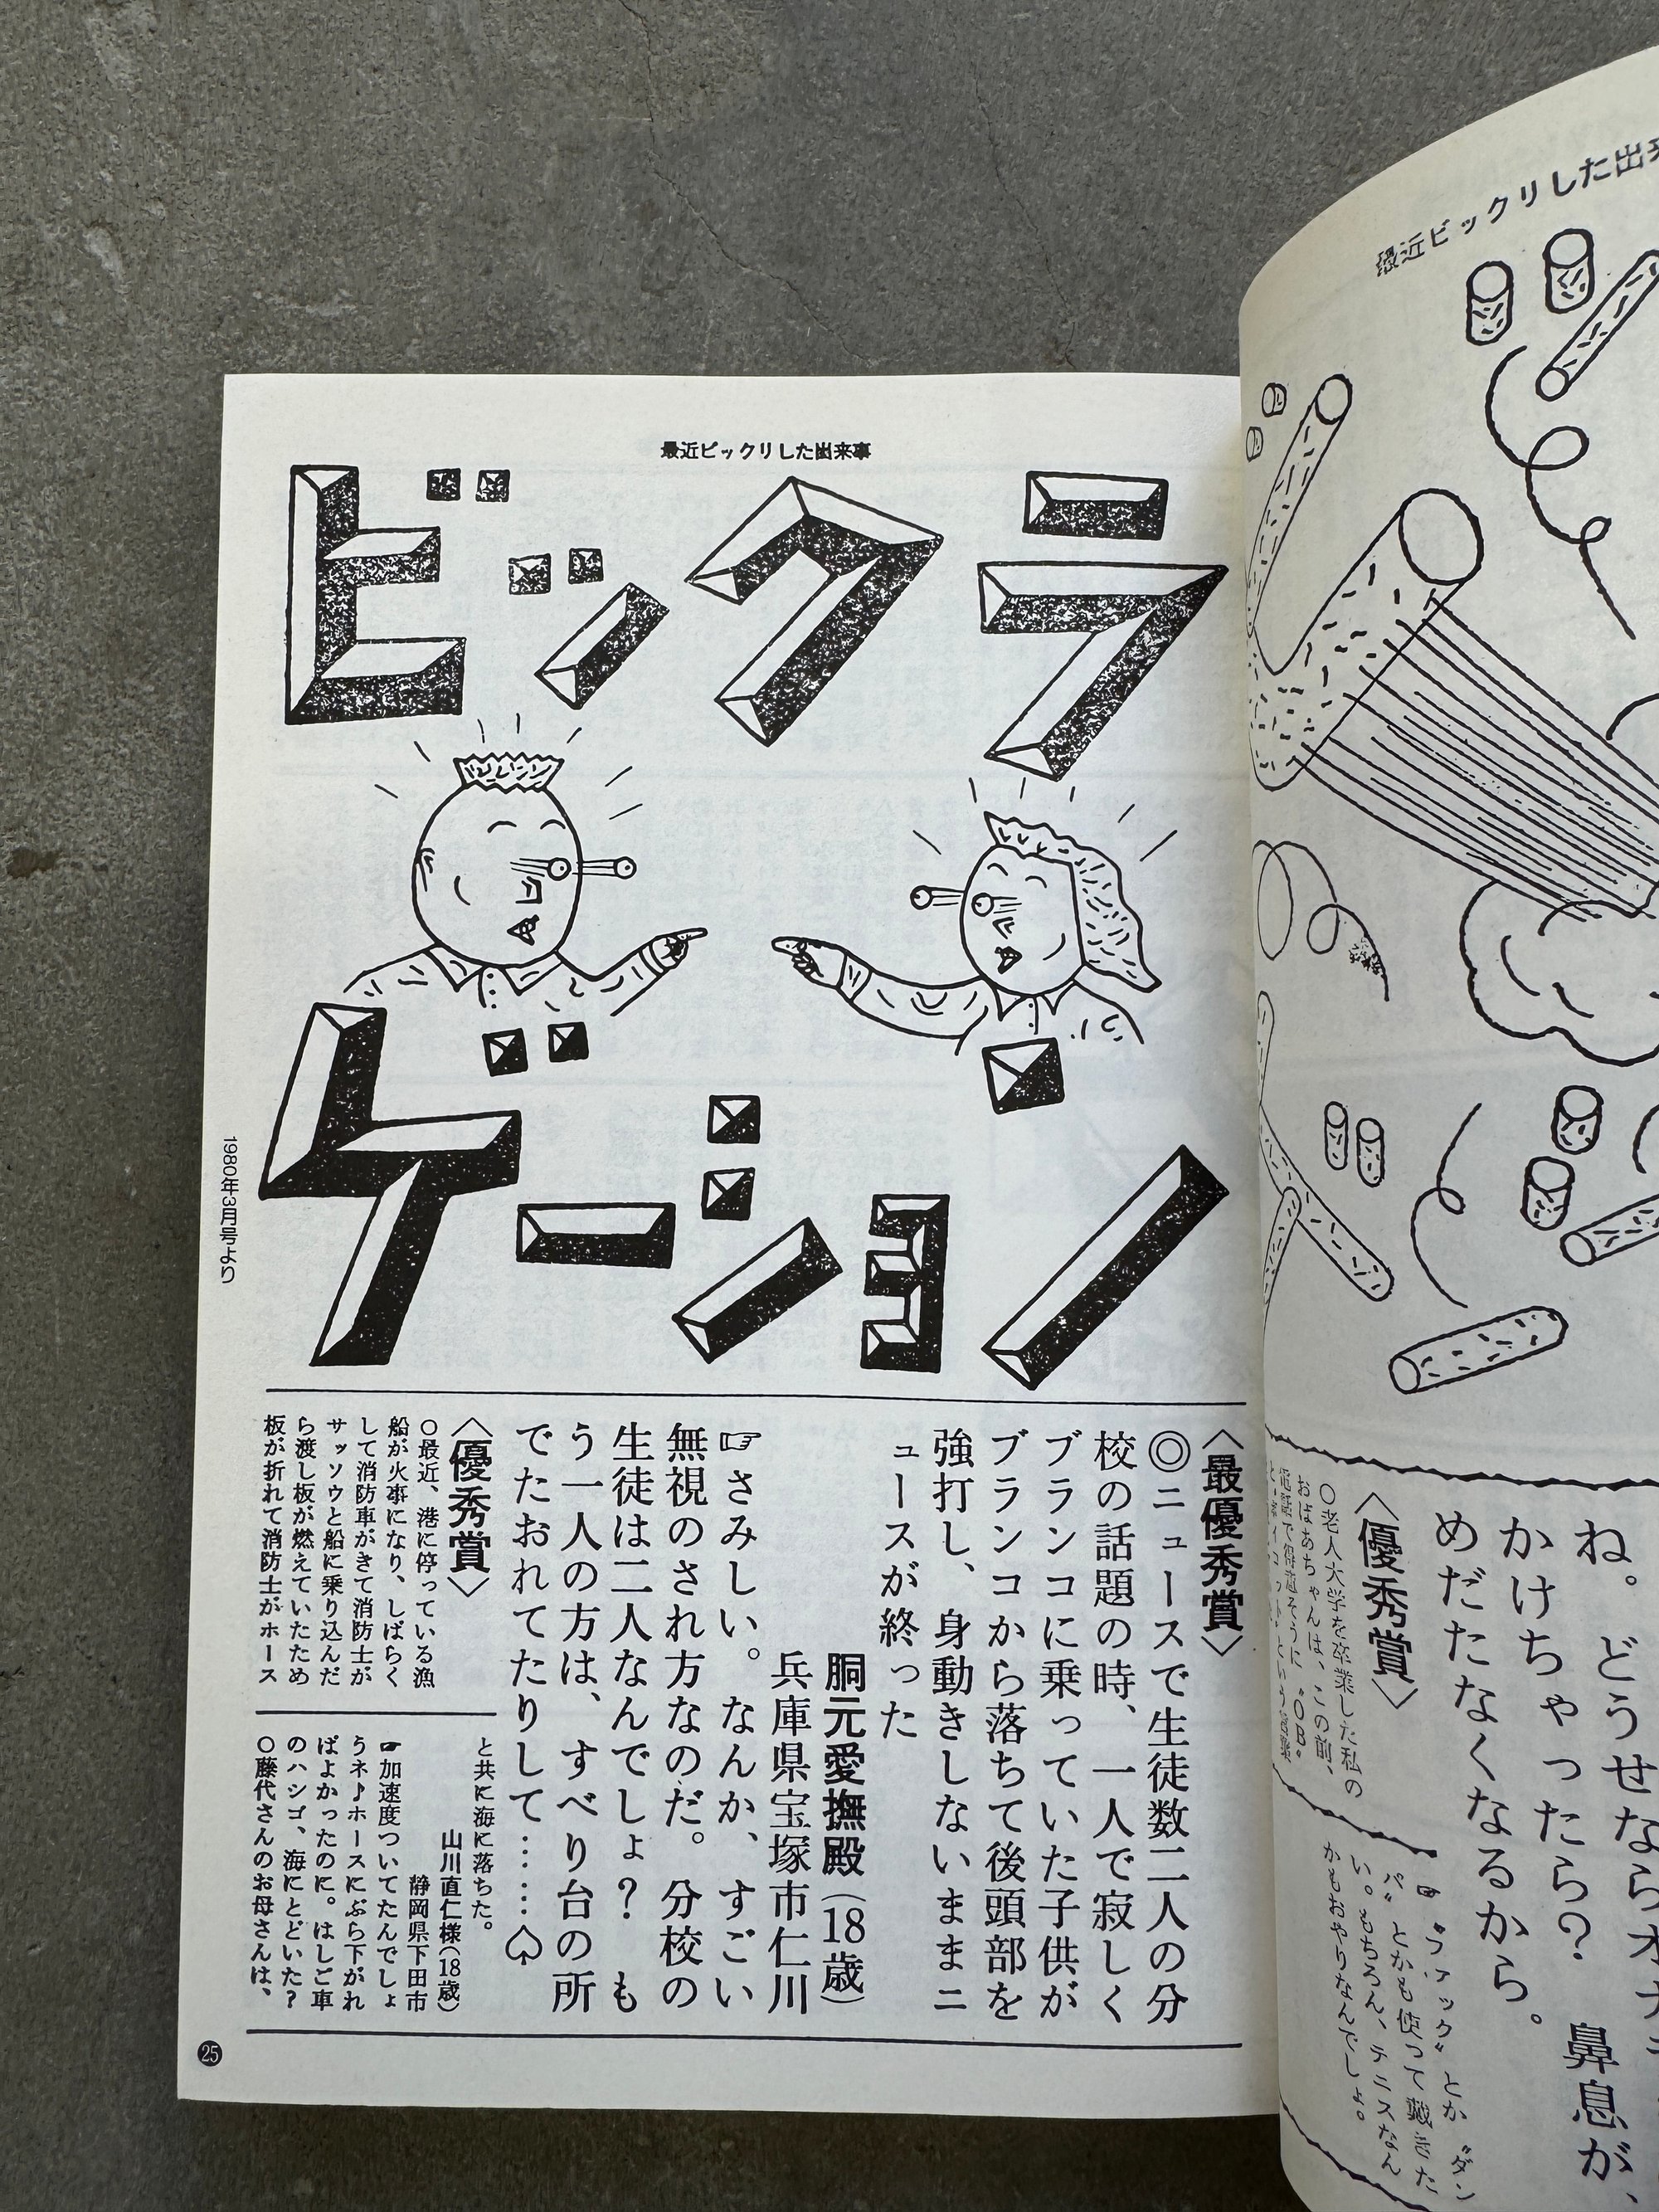 最近ビックリした出来事
ビックラ
ゲーション
1980年3月号より
〈最優秀賞〉
◎ニュースで生徒数二人の分
校の話題の時、一人で寂しく
ブランコに乗っていた子供が
ブランコから落ちて後頭部を
強打し、身動きしないままニ
ュースが終った
胴元愛撫殿(18歳)
兵庫県宝塚市仁川
☞さみしい。なんか、すごい
無視のされ方なのだ。分校の
生徒は二人なんでしょ？も
う一人の方は、すべり台の所
でたおれてたりして……♤
〈優秀賞〉
○最近、港に停っている漁
船が火事になり、しばらく
して消防車がきて消防士が
サッソウと船に乗り込んだ
ら渡し板が燃えていたため
板が折れて消防士がホース
と共に海に落ちた。
山川直仁様(18歳)
静岡県下田市
☛加速度ついてたんでしょ
うネ♪ホースにぶら下がれ
ばよかったのに。はしご車
のハシゴ、海にとどいた？
○藤代さんのお母さんは、
25
最近ビックリした出来
ね。どうせなら
かけちゃったら？鼻息が、
めだたなくなるから。
〈優秀賞〉
○老人大学を卒業した私の
おばあちゃんは、この前、
電話で得意そうに〝OB〟
☛〝ファック〟とか〝ダン
パ〟とかも使って戴きた
い。もちろん、テニスなん
かもおやりなんでしょ。